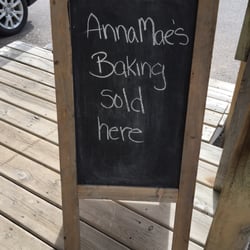 AnnaMae's
Baking
sold
here